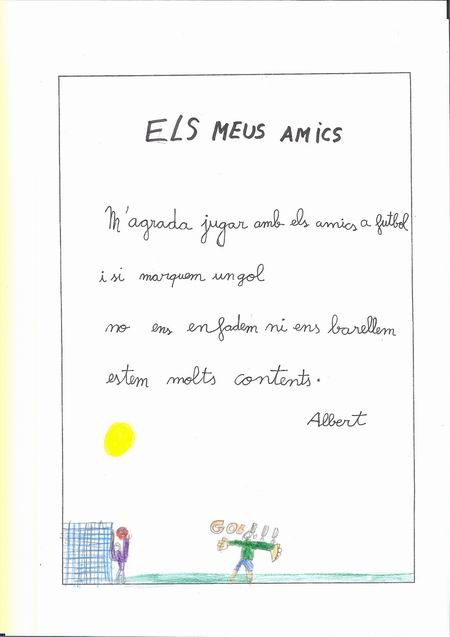 ELS MEUS AMICS
M'agrada jugar amb els amics a futbol
i si marquem un gol
no ens enfadem ni ens barellem
estem molts contents.
Albert
GOL!!!